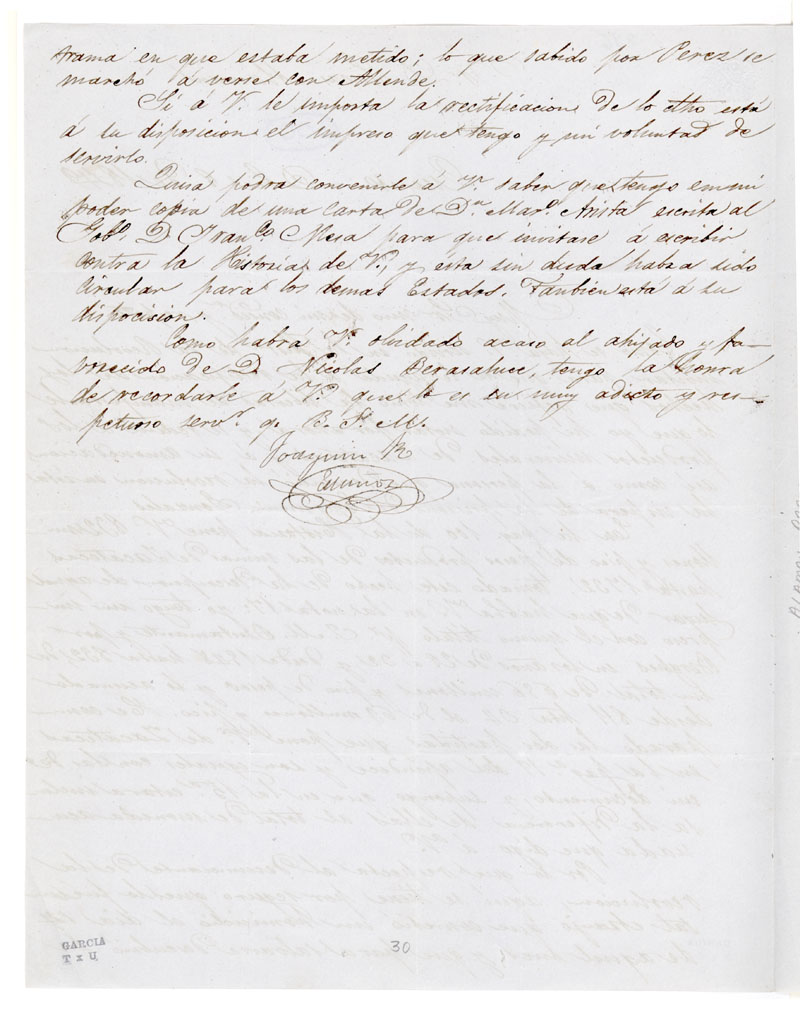 trama en que estaba metido; lo que sabido por Perez se
marchó á verse con Allende.
Si á V. le importa la rectificacion de lo dho está
á su disposicion el impreso que tengo y mi voluntad de
servirlo.
Quisá podra convenirle á V. saber que tengo en mi
poder copia de una carta de Dn. Maro. Arista escrita al
Gobr. D. Franco. Mesa para que invitase á escribir
contra la Historia de V., y ésta sin duda habra sido
circular para los demas Estados. Tanbien está á su
disposicion.
Como habrá V. olvidado acaso al ahijado y fa-
vorecido de D. Nicolas Berasaluce, tengo la honra
de recordarle á V. que lo es su muy adicto y res-
petuoso servr. q. B. S. M.
Joaquin R
GARCIA
TxU
30